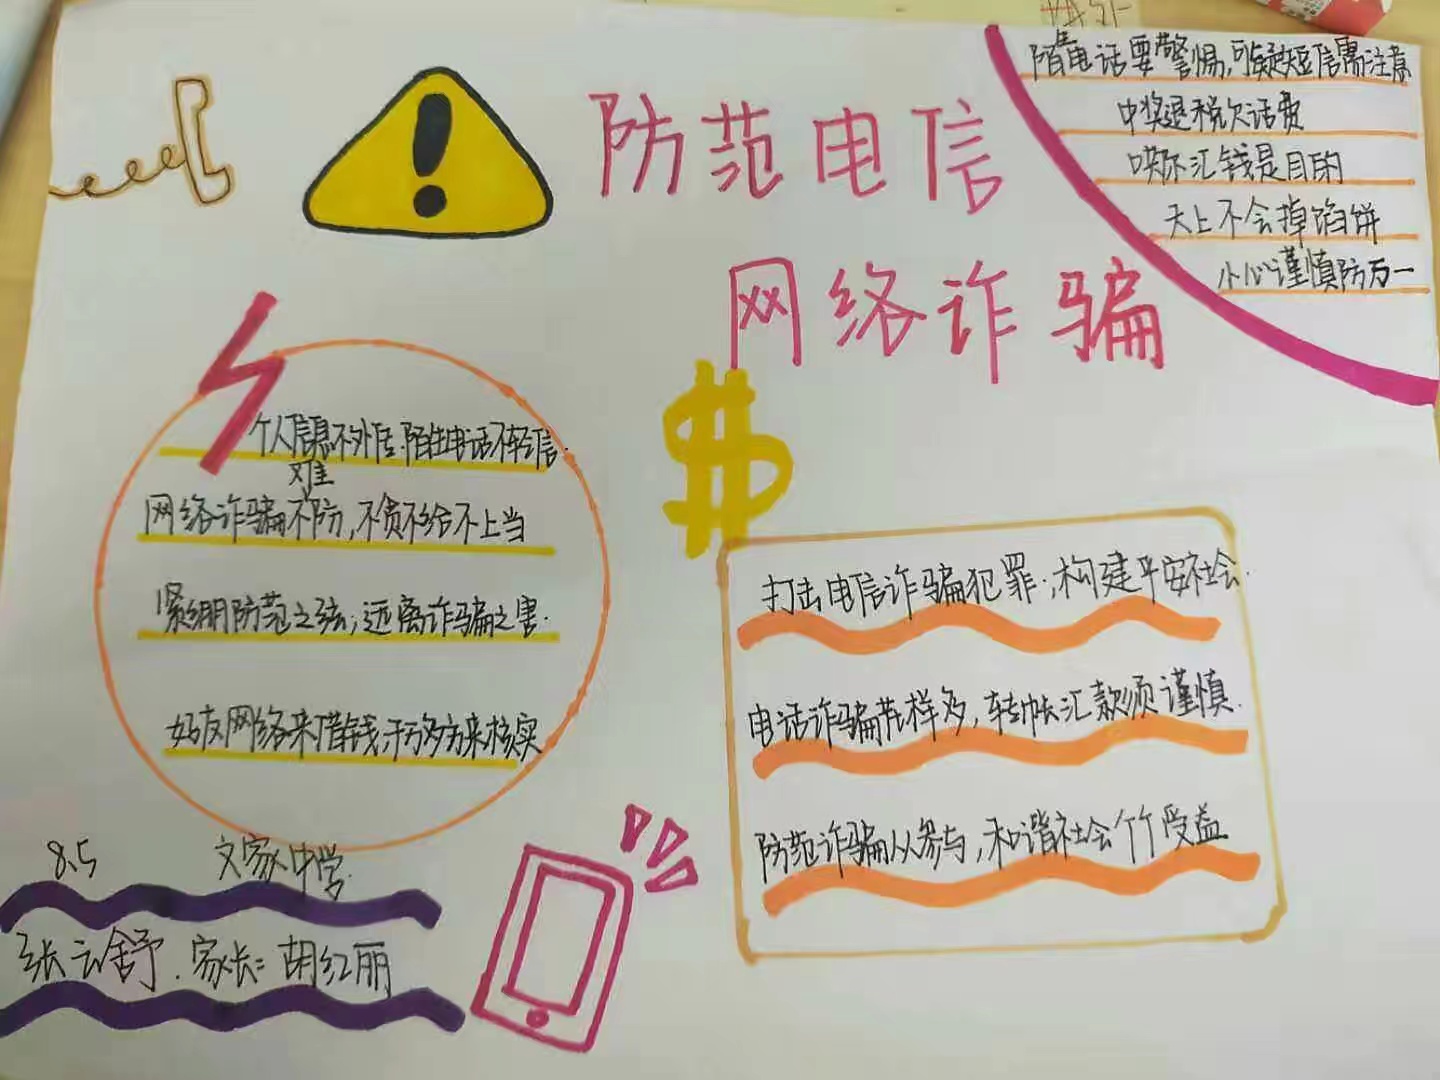 防范电信
网络诈骗
陌生电话要警惕,可疑短信需注意
中奖退税欠话费
哄你汇钱是目的
天上不会掉馅饼
小心谨慎防万一
个人信息不外传.陌生电话不轻信.
难
网络诈骗不防,不贪不给不上当
紧绷防范之弦,远离诈骗之害.
好友网络来借钱,千万多方来核实
打击电信诈骗犯罪,构建平安社会.
电话诈骗花样多,转帐汇款须谨慎.
防范诈骗从参与,和谐社会个个受益
8.5 文家中学.
张云舒.家长:胡红丽